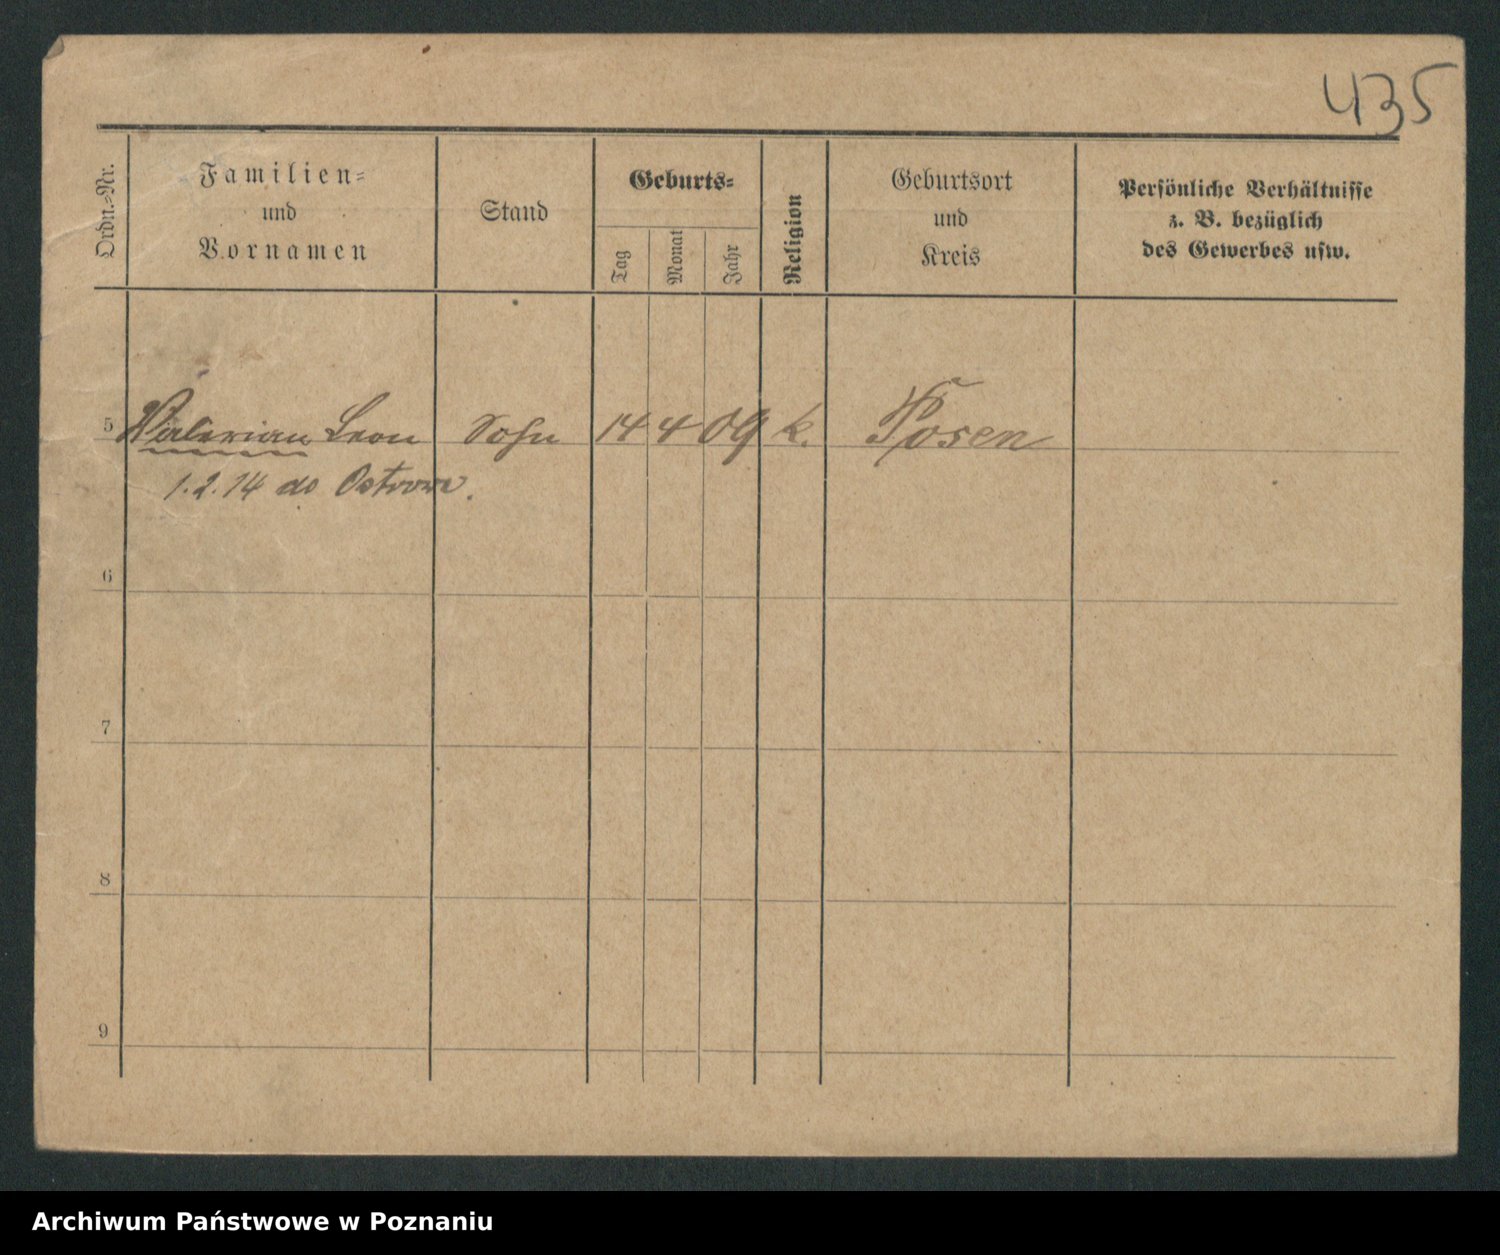 435
Ordn.-Nr.
Familien-
und
Vornamen
Stand
Geburts-
Tag
Monat
Jahr
Religion
Geburtsort
und
Kreis
Persönliche Verhältnisse
z. B. bezüglich
des Gewerbes usw.
5 Walerian Leon Sohn 14 4 09 k. Posen
1.2.14 do Ostrowa.
6
7
8
9
Archiwum Państwowe w Poznaniu